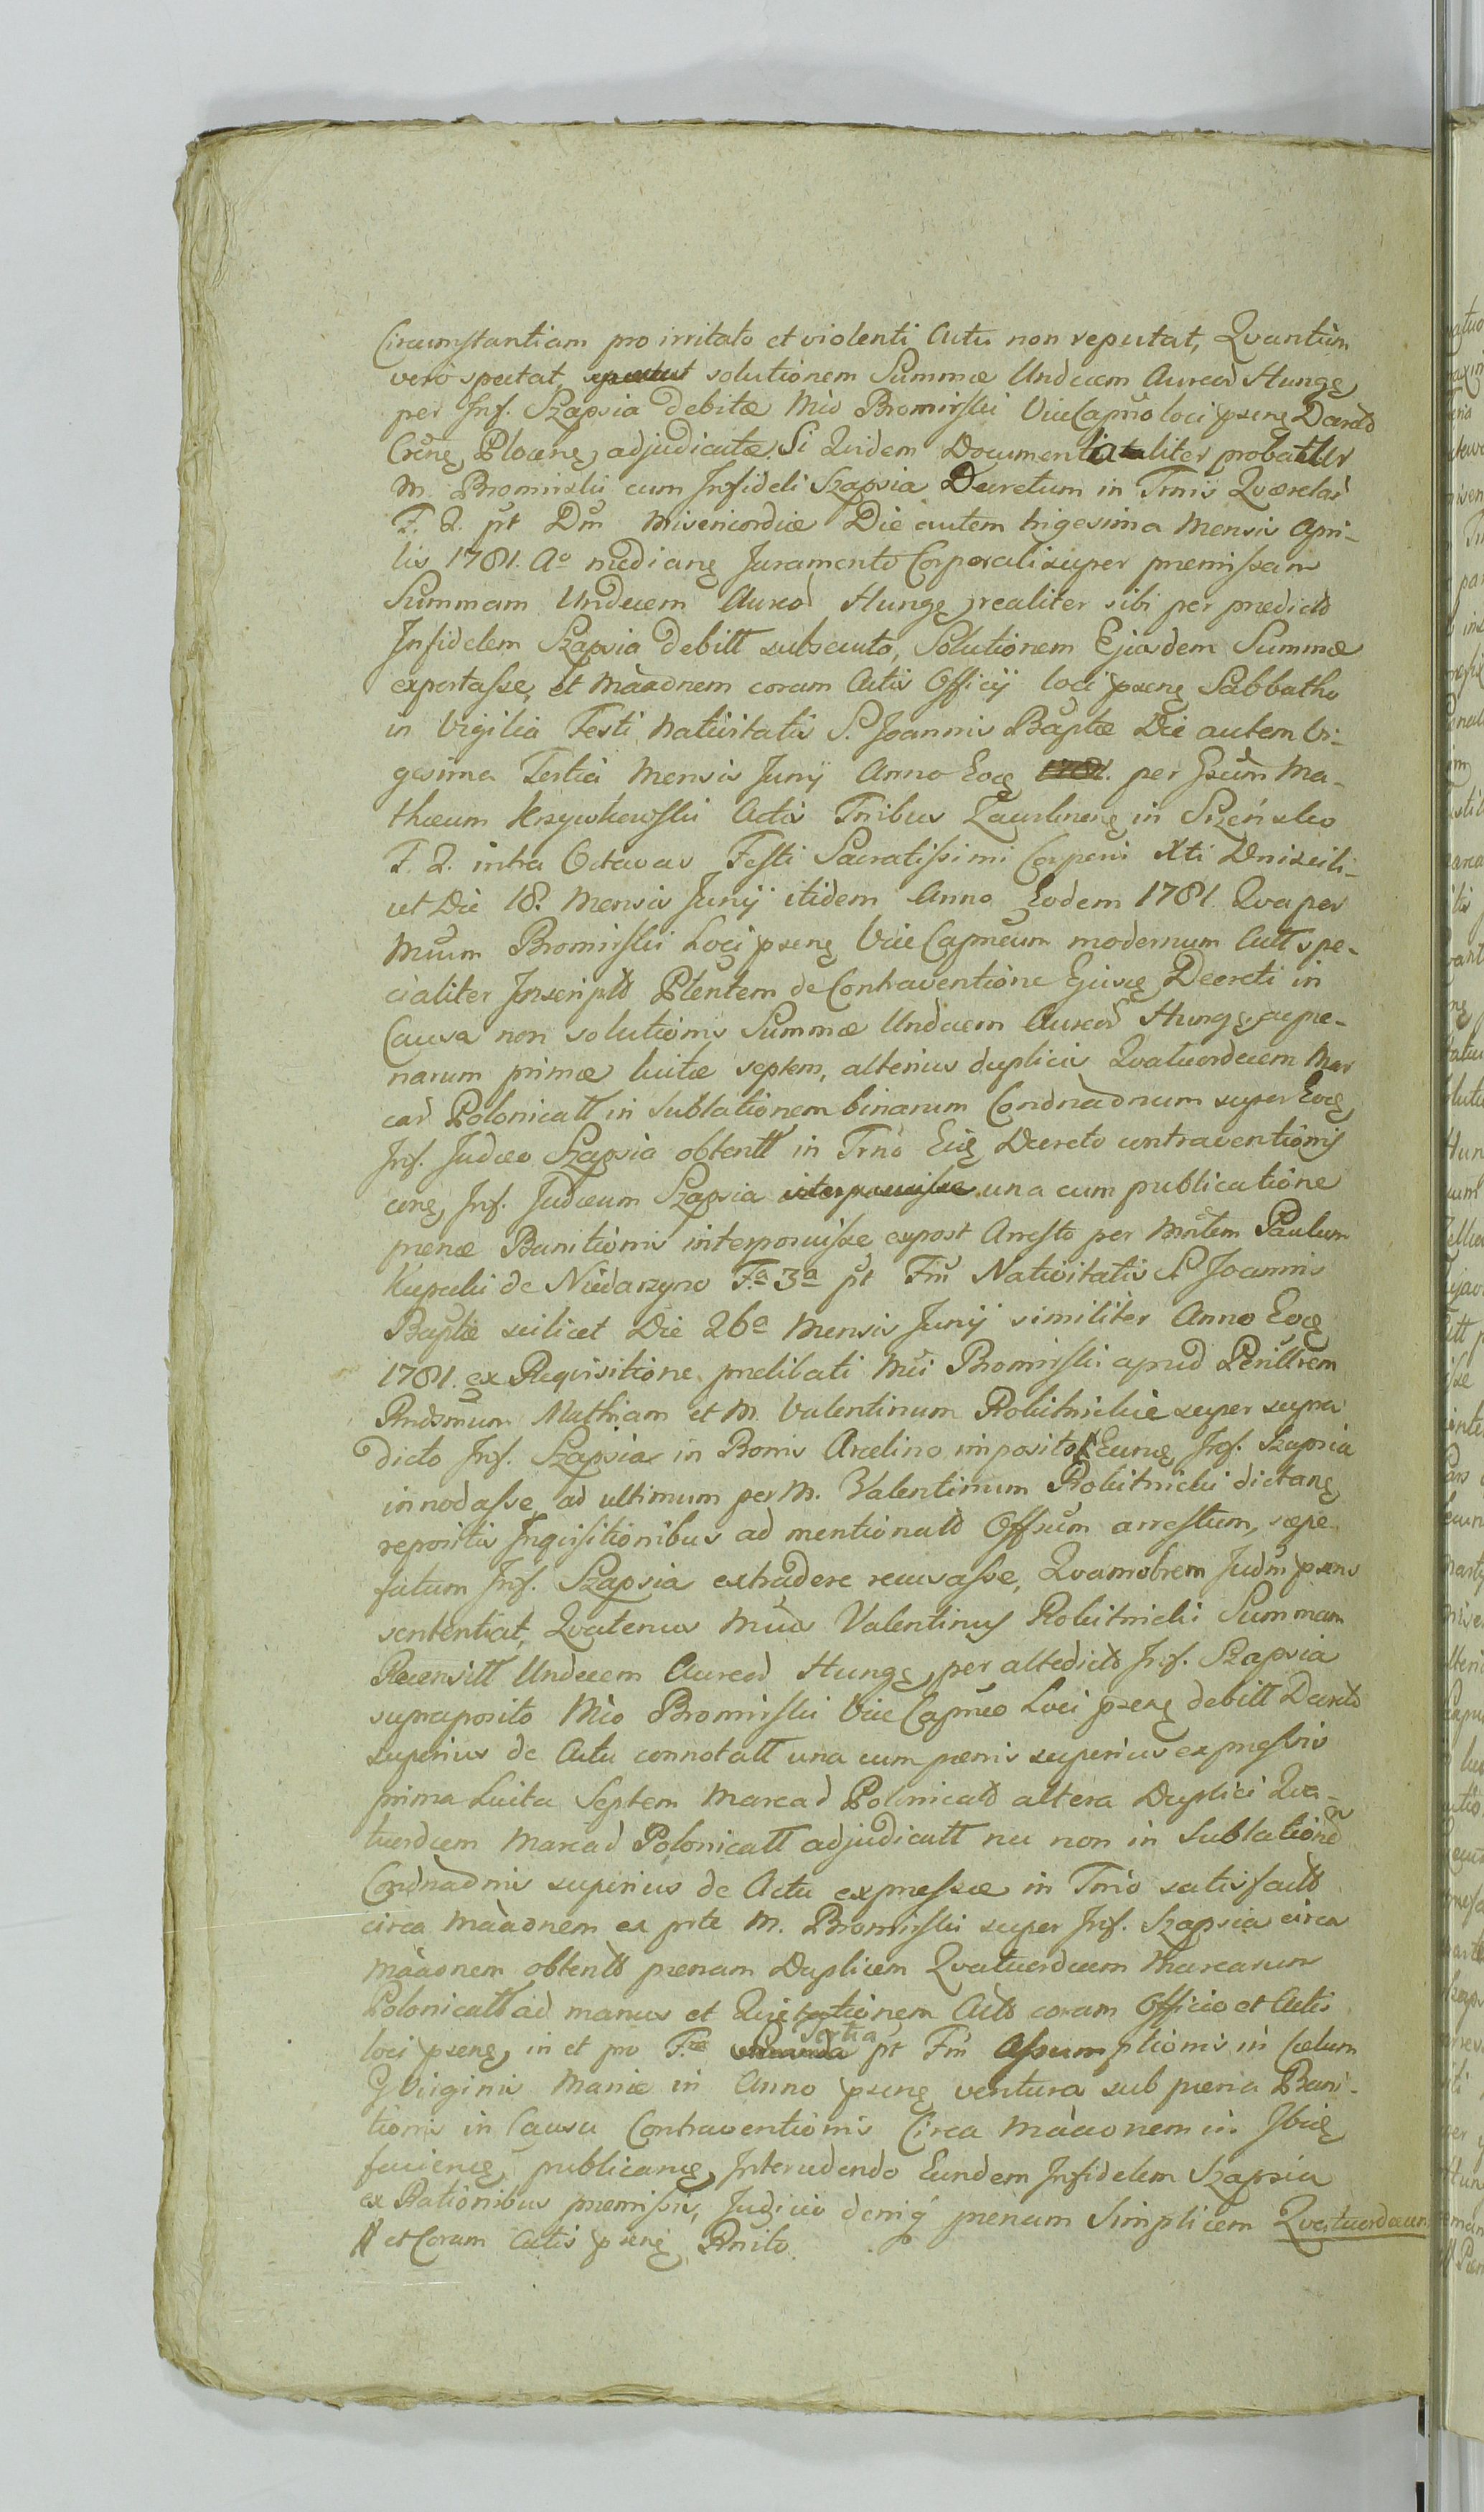 Circumstantiam pro irritato et violenti Actu non reputat, Qvantùm
verò spectat, solutionem Summæ Undecem Aureoŕ Hungę
per Inf. Szapsia debitæ Mło Bromirski ViceCapnẽo loci psenę Decreto
Crẽnę Plocenę adjudicatæ. Si Quidem Documentaliter probatur
M. Bromirski cum Infideli Szapsia Decretum in Trnis Qværelaŕ
F. 2. pt Dm̃ Misericordiæ Die autem trigesima Mensis Apri-
lis 1781. Aº medianę Juramento Corporali super præmissam
Summam Undecem Aureoŕ Hungę realiter sibi per prædictũ
Infidelem Szapsia debitt subsecuto, Solutionem Ejusdem Summæ
exportasse, et Màãonem coram Actis Officij loci psenę Sabbatho
in Vigilia Festi Nativitatis S. Joannis Baptæ Die autem Vi-
gesima Tertia Mensis Junij Anno Eoę 1781. per Gsum Ma-
thæum Krzywkowski Actis Trnibus Zawkrnenę in Szrensko
F. 2. intra Octavas Festi Sacratissimi Corporis Xti Dni scili-
cet Die 18ª Mensis Junij itidem Anno Eodem 1781. Qua per
Mcum Bromirski Loci psenę ViceCapneum modernum Actt spe-
cialiter Inscriptũ Ptentem de Contraventione Ejusę Decreti in
Causa non solutionis Summæ Undecem Aureoŕ Hungę ac pæ-
narum primæ luitæ septem, alterius duplicis Qvatuordecem Mar
caŕ Polonicałt in sublationem binarum Condnãonum super Eoę
Inf. Judæo Szapsia obtentt in Trnò Eię Decreto contraventionis
cenę, Inf. Judæum Szapsia una cum publicatione
pænæ Banitionis interposuisse expost Arresto per Mntem Paulum
Kępski de Niedarzyno F.ª 3ª pt Fm̃ Nativitatis S. Joannis
Baptæ scilicet Die 26ª Mensis Junij similiter Anno Eoę
1781. ex Reqvisitione prælibati Mci Bromirski apud Perillrem
Rndsmum Mathiam et M. Valentinum Rokitnickie super supra
dicto Inf. Szapsia in Bonis Arcelino imposito // Eunę Inf. Szapsia
innodasse, ad ultimum per M. Valentinum Rokitnicki dictanę
repositis Inqvisitionibus ad mentionatũ Offsum arrestum, sæpe
fatum Inf. Szapsia extradere recusasse, Qvamobrem Judm̃ psens
sententiat, Qvatenus Mcus Valentinus Rokitnicki Summam
Recensitt Undecem Aureoŕ Hungę per altedictũ Inf. Szapsia
supraposito Mło Bromirski ViceCapneo Loci psenę debitt Decreto
superius de Actu connotatt una cum pænis superius expressis
prima Luita Septem Marcaŕ Polonicałt altera Duplici Qva-
tuordecem Marcaŕ Polonicałt adjudicatt nec non in Sublationem
Condnãonis superius de Actu expressæ in Trnò satisfactũ
circa Màãonem ex prte M. Bromirski super Inf. Szapsia circa
Màãonem obtentũ pænam Duplicem Qvatuordecem Marcarum
Polonicałt ad manus et Quietationem Actũ coram Officio et Actis
loci psenę, in et pro F.ª Tertia pt Fm̃ Assumptionis in Cælum
GVirginis Mariæ in Anno psenę ventura sub pæna Bani-
tionis in Causa Contraventionis Circa Màãonem in Ibię
faciensę publicanę, Intercedendo Eundem Infidelem Szapsia
ex Rationibus præmissis, Judicio deniq̃ pænam Simplicem Qvatuordecem
// et Coram Actis psenę Rnito.